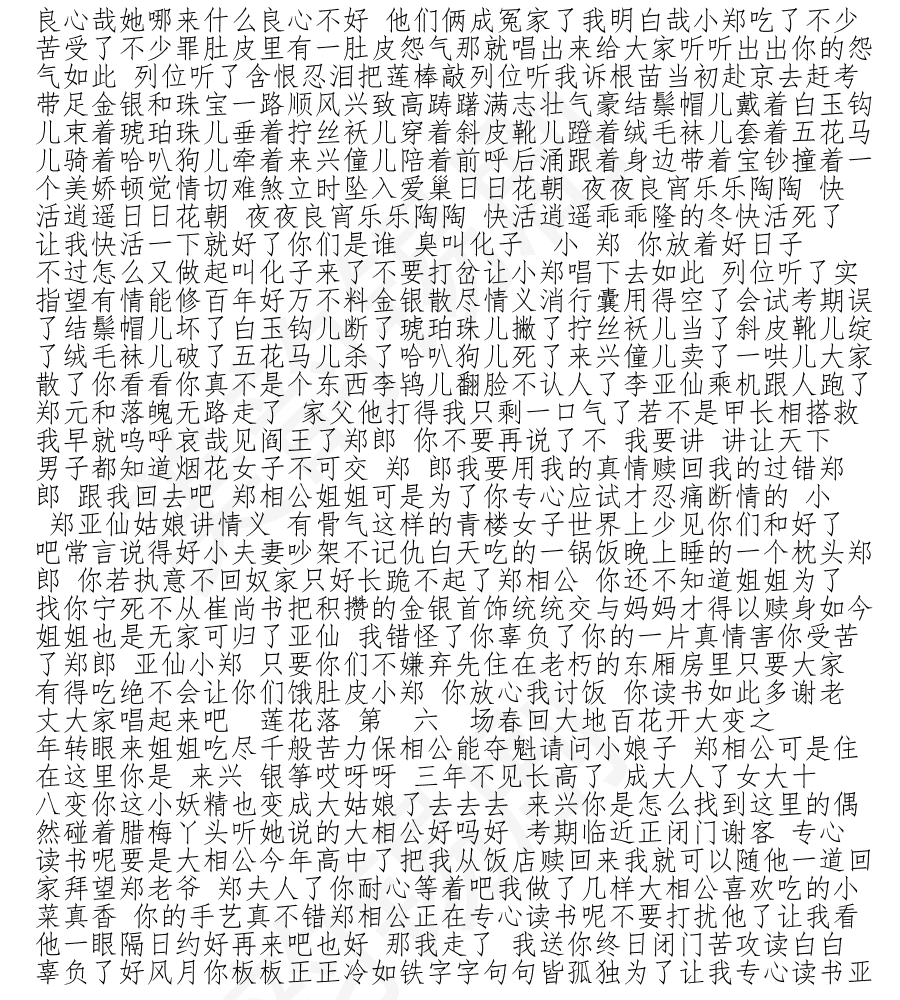 良心哉她哪来什么良心不好 他们俩成冤家了我明白哉小郑吃了不少
苦受了不少罪肚皮里有一肚皮怨气那就唱出来给大家听听出出你的怨
气如此 列位听了含恨忍泪把莲棒敲列位听我诉根苗当初赴京去赶考
带足金银和珠宝一路顺风兴致高踌躇满志壮气豪结鬃帽儿戴着白玉钩
儿束着琥珀珠儿垂着拧丝袄儿穿着斜皮靴儿蹬着绒毛袜儿套着五花马
儿骑着哈叭狗儿牵着来兴僮儿陪着前呼后涌跟着身边带着宝钞撞着一
个美娇顿觉情切难煞立时坠入爱巢日日花朝 夜夜良宵乐乐陶陶 快
活逍遥日日花朝 夜夜良宵乐乐陶陶 快活逍遥乖乖隆的冬快活死了
让我快活一下就好了你们是谁 臭叫化子  小 郑 你放着好日子
不过怎么又做起叫化子来了不要打岔让小郑唱下去如此 列位听了实
指望有情能修百年好万不料金银散尽情义消行囊用得空了会试考期误
了结鬃帽儿坏了白玉钩儿断了琥珀珠儿撇了拧丝袄儿当了斜皮靴儿绽
了绒毛袜儿破了五花马儿杀了哈叭狗儿死了来兴僮儿卖了一哄儿大家
散了你看看你真不是个东西李鸨儿翻脸不认人了李亚仙乘机跟人跑了
郑元和落魄无路走了 家父他打得我只剩一口气了若不是甲长相搭救
我早就呜呼哀哉见阎王了郑郎 你不要再说了不 我要讲 讲让天下
男子都知道烟花女子不可交 郑 郎我要用我的真情赎回我的过错郑
郎 跟我回去吧 郑相公姐姐可是为了你专心应试才忍痛断情的 小
 郑亚仙姑娘讲情义 有骨气这样的青楼女子世界上少见你们和好了
吧常言说得好小夫妻吵架不记仇白天吃的一锅饭晚上睡的一个枕头郑
郎 你若执意不回奴家只好长跪不起了郑相公 你还不知道姐姐为了
找你宁死不从崔尚书把积攒的金银首饰统统交与妈妈才得以赎身如今
姐姐也是无家可归了亚仙 我错怪了你辜负了你的一片真情害你受苦
了郑郎 亚仙小郑 只要你们不嫌弃先住在老朽的东厢房里只要大家
有得吃绝不会让你们饿肚皮小郑 你放心我讨饭 你读书如此多谢老
丈大家唱起来吧  莲花落 第  六  场春回大地百花开大变之
年转眼来姐姐吃尽千般苦力保相公能夺魁请问小娘子 郑相公可是住
在这里你是 来兴 银筝哎呀呀 三年不见长高了 成大人了女大十
八变你这小妖精也变成大姑娘了去去去 来兴你是怎么找到这里的偶
然碰着腊梅丫头听她说的大相公好吗好 考期临近正闭门谢客 专心
读书呢要是大相公今年高中了把我从饭店赎回来我就可以随他一道回
家拜望郑老爷 郑夫人了你耐心等着吧我做了几样大相公喜欢吃的小
菜真香 你的手艺真不错郑相公正在专心读书呢不要打扰他了让我看
他一眼隔日约好再来吧也好 那我走了 我送你终日闭门苦攻读白白
辜负了好风月你板板正正冷如铁字字句句皆孤独为了让我专心读书亚